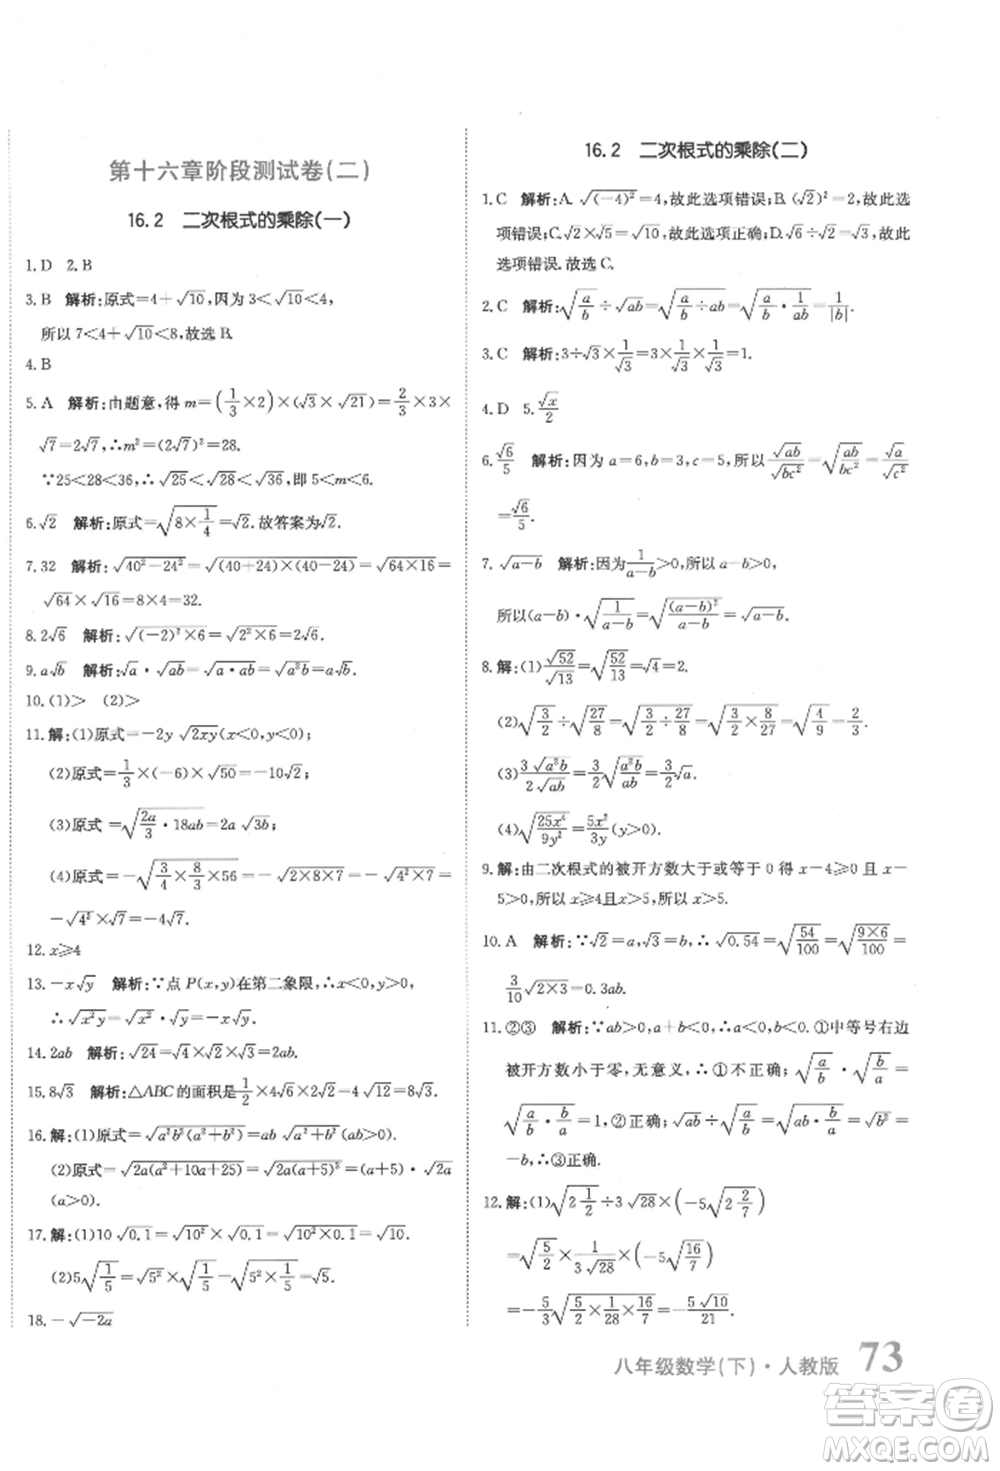 第十六章阶段测试卷(二)
16.2 二次根式的乘除(一)
1.D 2.B
3.B 解析:原式=4+√10,因为 3<√10<√16,
所以 7<4+√10<8,故选 B.
4.B
5.A 解析:由题意,得 m=(1/3×2)×(√3×√21)=2/3×3×
√7=2√7,∴m²=(2√7)²=28.
∵25<28<36,∴√25<√28<√36,即 5<m<6.
6.√2 解析:原式=√(8×1/4)=√2.故答案为√2.
7.32 解析:√(40²-24²)=√((40+24)×(40-24))=√(64×16)=
√64×√16=8×4=32.
8.2√6 解析:√((-2)²×6)=√(2²×6)=2√6.
9.a√b 解析:√a·√ab=√(a·ab)=√(a²b)=a√b.
10.(1)> (2)>
11.解:(1)原式=-2y√(2xy)(x<0,y<0);
(2)原式=1/3×(-6)×√50=-10√2;
(3)原式=√(2a/3·18ab)=2a√(3b);
(4)原式=-√(3/4×8/3×56)=-√(2×8×7)=-√(4²×7)=
-√4²×√7=-4√7.
12.x≥4
13.-x√y 解析:∵点 P(x,y)在第二象限,∴x<0,y>0,
∴√(x²y)=√x²·√y=-x√y.
14.2ab 解析:√24=√4×√2×√3=2ab.
15.8√3 解析:△ABC的面积是1/2×4√6×2√2=4√12=8√3.
16.解:(1)原式=√(a²b²(a²+b²))=ab√(a²+b²).
(2)原式=√(2a(a²+10a+25))=√(2a(a+5)²)=(a+5)
√2a.
17.解:(1)10√0.1=√10²×√0.1=√(10²×0.1)=√10.
(2)5√(1/5)=√5²×√(1/5)=√(5²×1/5)=√5.
18.-√(-2a)
16.2 二次根式的乘除(二)
1.C 解析:A.√((-4)²)=√16=4,故此选项错误;B.(√2)²=2,故此
选项错误;C.√2×√5=√10,故此选项正确;D.√6÷√2=√3,故此
选项错误.故选 C.
2.C 解析:√(a/b)÷√ab=√(a/b÷ab)=√(a/b·1/ab)=1/|b|.
3.C 解析:3÷√3×1/√3=3×1/√3×1/√3=1.
4.D 5.√x/2
6.√6/5 解析:因为 a=6,b=3,c=5,所以√ab/√(bc²)=√(ab/bc²)=√a/√c²
=√6/5.
7.√(a-b) 解析:因为1/(a-b)>0,所以 a-b>0,
所以(a-b)·√(1/(a-b))=√((a-b)²/(a-b))=√(a-b).
8.解:(1)√52/√13=√(52/13)=√4=2.
(2)√(3/2)÷√(27/8)=√(3/2÷27/8)=√(3/2×8/27)=√(4/9)=2/3.
(3)3√(a²b)/2√(ab)=3/2√(a²b/ab)=3/2√a.
(4)√(25x⁴/9y²)=5x²/3y(y>0).
9.解:由二次根式的被开方数大于或等于 0 得 x-4≥0,x-
5>0,所以 x≥4且x>5.所以 x>5.
10.A 解析:∵√2=a,√3=b,∴√0.54=√(54/100)=√(9×6/100)=
3/10√(2×3)=0.3ab.
11.②③ 解析:∵ab>0,a+b<0,∴a<0,b<0.①中等号右边
被开方数小于零,无意义,∴①错误;∵√(a/b)·√(b/a)=
√(a/b·b/a)=1,∴②正确;∵√ab÷√(a/b)=√(ab·b/a)=√b²=
-b,∴③正确.
12.解:(1)√(2 1/2)÷3√28×(-5√(2 2/7))
=√(5/2)×1/(3√28)×(-5√(16/7))
=-5/3√(5/2×1/28×16/7)=-5√10/21.
八年级数学(下)·人教版 73
答案圈
MXQE.COM